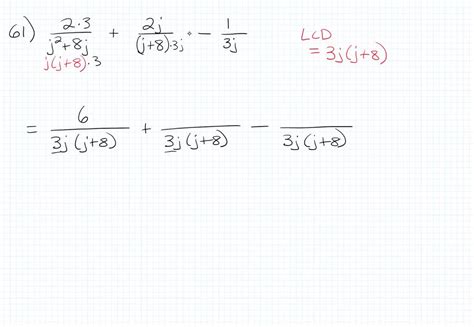 61) 2·3/(j²+8j) + 2j/((j+8)·3j) · − 1/3j LCD
j(j+8)·3 = 3j(j+8)
= 6/(3j(j+8)) + /(3j(j+8)) − /(3j(j+8))